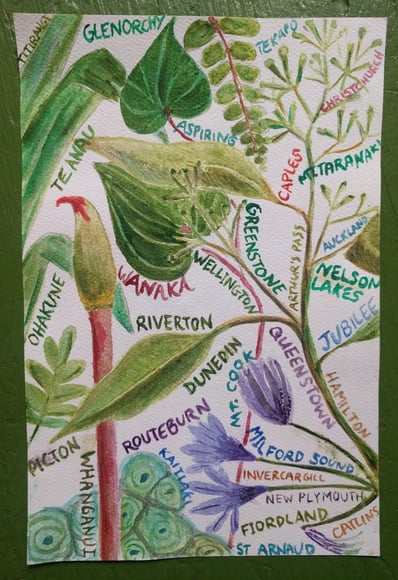 TITIRANGI
GLENORCHY
TEKAPO
CHRISTCHURCH
ASPIRING
TE ANAU
CAPLES
MT. TARANAKI
GREENSTONE
ARTHUR'S PASS
AUCKLAND
WANAKA
WELLINGTON
NELSON
LAKES
OHAKUNE
RIVERTON
JUBILEE
DUNEDIN
MT. COOK
QUEENSTOWN
HAMILTON
PICTON
ROUTEBURN
WHANGANUI
MILFORD SOUND
INVERCARGILL
NEW PLYMOUTH
FIORDLAND
CATLINS
ST ARNAUD